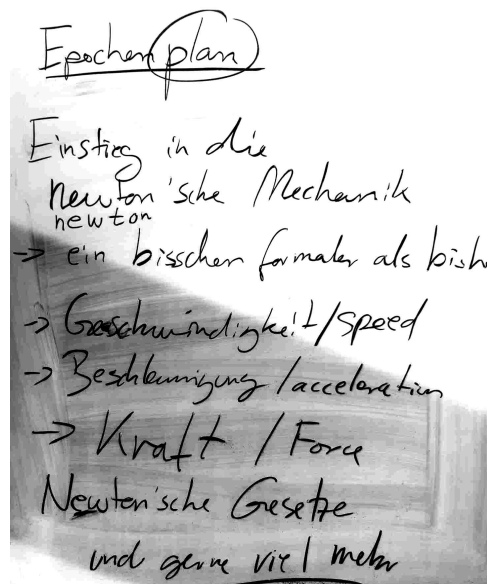 Epochenplan
Einstieg in die
newton'sche Mechanik
newton
-> ein bisschen formaler als bish
-> Geschwindigkeit/speed
-> Beschleunigung/acceleration
-> Kraft / Force
Newton'sche Gesetze
und gerne viel mehr